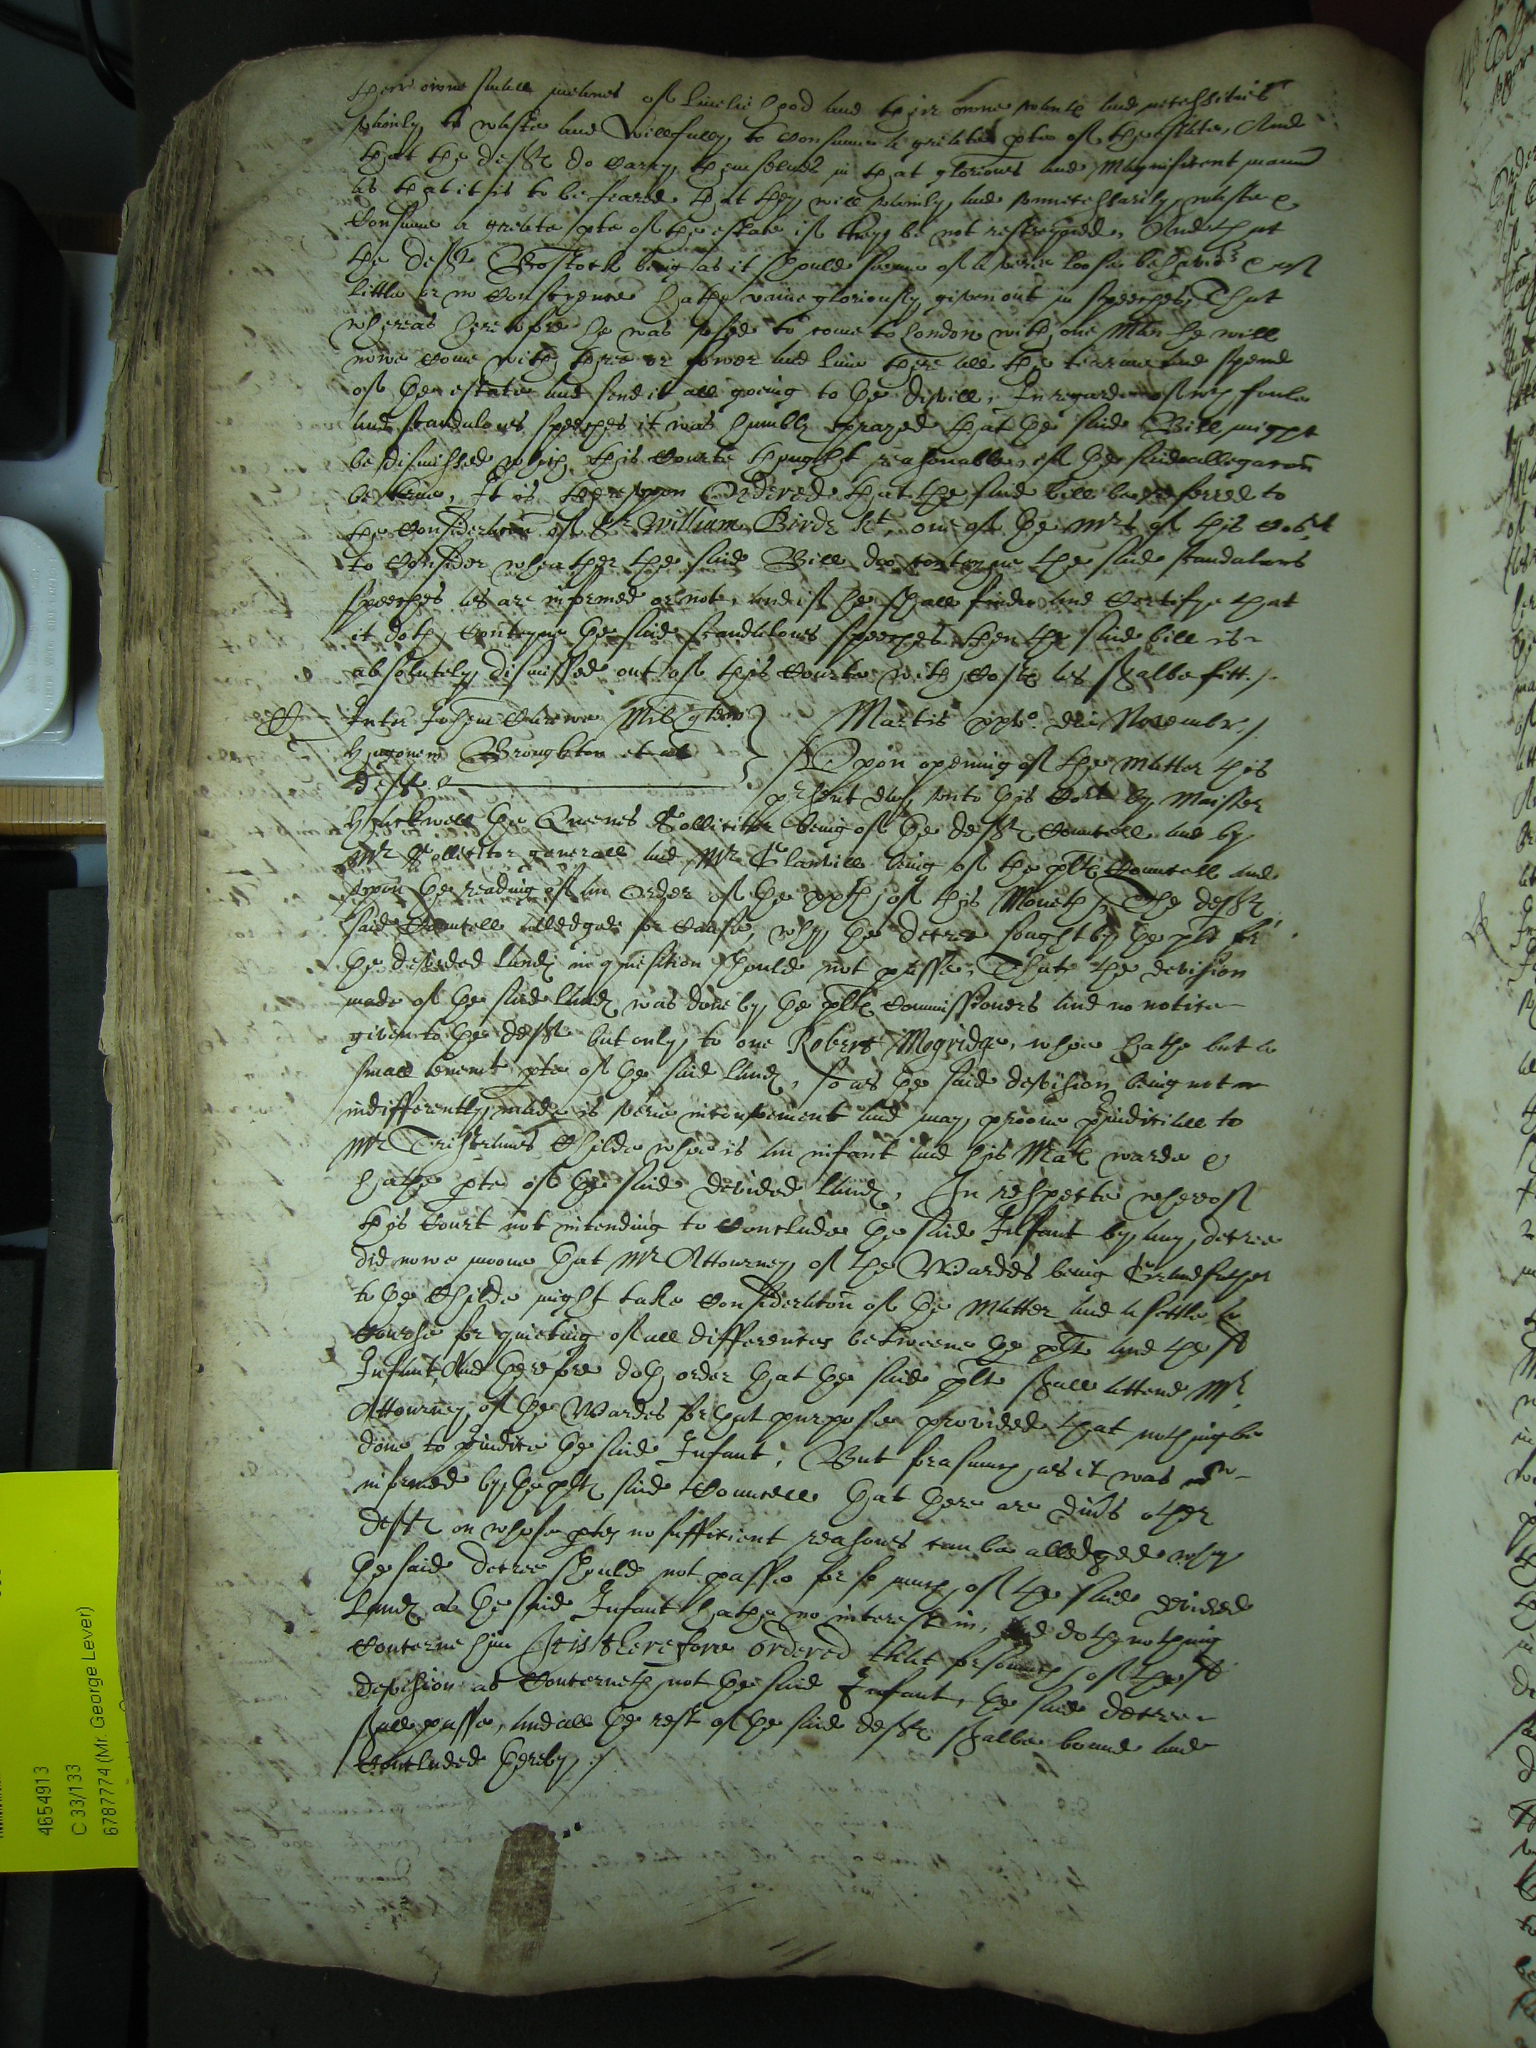 their owne small meanes of livelihood and their owne wants and necessities
vainly to waste and willfully to consume a greate pte of the state, And
that the defts do carry themselves in that glorious and magnificent mann
as that it is to be feared that they will vainly and unnecessarily waste &
consume a greate pte of the estate if they be not restreyned, And that
the deft Bostock being as it should seeme of a verie loose behavior & of
little or no conscyence hath vaine gloriously given out in speeches, That
whereas heretofore he was used to come to London with one man he will
nowe come with three or fower and live there all the tearme and spend
of the estate and send it all going to the divill, In regard of wch foule
and scandalous speeches it was humbly prayed that the said Bill might
be dismissed which this Courte thought reasonable, if the said allegacon
be true, It is thereuppon Ordered that the said bill be referred to
the consideracon of Sr William Birde kt, one of the Mrs of this Court
to consider wheather the said Bill doe conteyne the said scandalous
speeches as are informed or note, and if he shall finde and certifye that
it doth conteyne the said scandalous speeches then the said bill is
absolutely dismissed out of this Courte with costs as shalbe fitt ./.
Inter Johem Militem
Hugonem Broughton et al
defts
Martis die Novembr./
Upon opening of the matter this
present day unto this Cort by Maister
Hackwell the Queenes Sollicitor being of the defts Councell and by
Mr Sollicitor generall and Mr Glanvile being of the plts Councell and
upon the reading of an Order of the xxth of this Moneth, The defts
said Councell alledged for cause, why the decree sought by the plt for
the devided lands in question should not passe, That the devision
made of the said lands was done by the plts Commissioners and no notice
given to the defts but only to one Robert Mogridge, whoe hathe but a
small tenemt pte of the said lands, so as the said devision being not
indifferently made is verie inconvenient and may proove prejudiciall to
Mr Tristrams Childe whoe is an infant and his Mats warde &
hathe pte of the said devided lands, In respecte whereof
this Court not intending to conclude the said Infant by any decree
did nowe moove that Mr Attourney of the Wardes being Grandfather
to the Childe might take consideracon of the matter and settle a
Course for quieting of all differences betweene the plts and the sd
Infant, And therefore doth order that the said plts shall attend Mr
Attourney of the Wardes for that purpose provided that nothing be
done to prejudice the said Infant, But forasmuch as it was
informed by the plts said Councell that there are divers other
defts on whose ptes no sufficient reasons can be alledged why
the said decree should not passe for so much of the said devided
lands as the said Infant hathe no interest in, and doth nothing
concerne him It is therefore ordered that forsomuch of the sd
devision as concerneth not the said Infant, the said decree
shall passe, and all the rest of the said defts shalbe bound and
concluded thereby ./.
4654913
C 33/133
6787774 (Mr. George Lever)